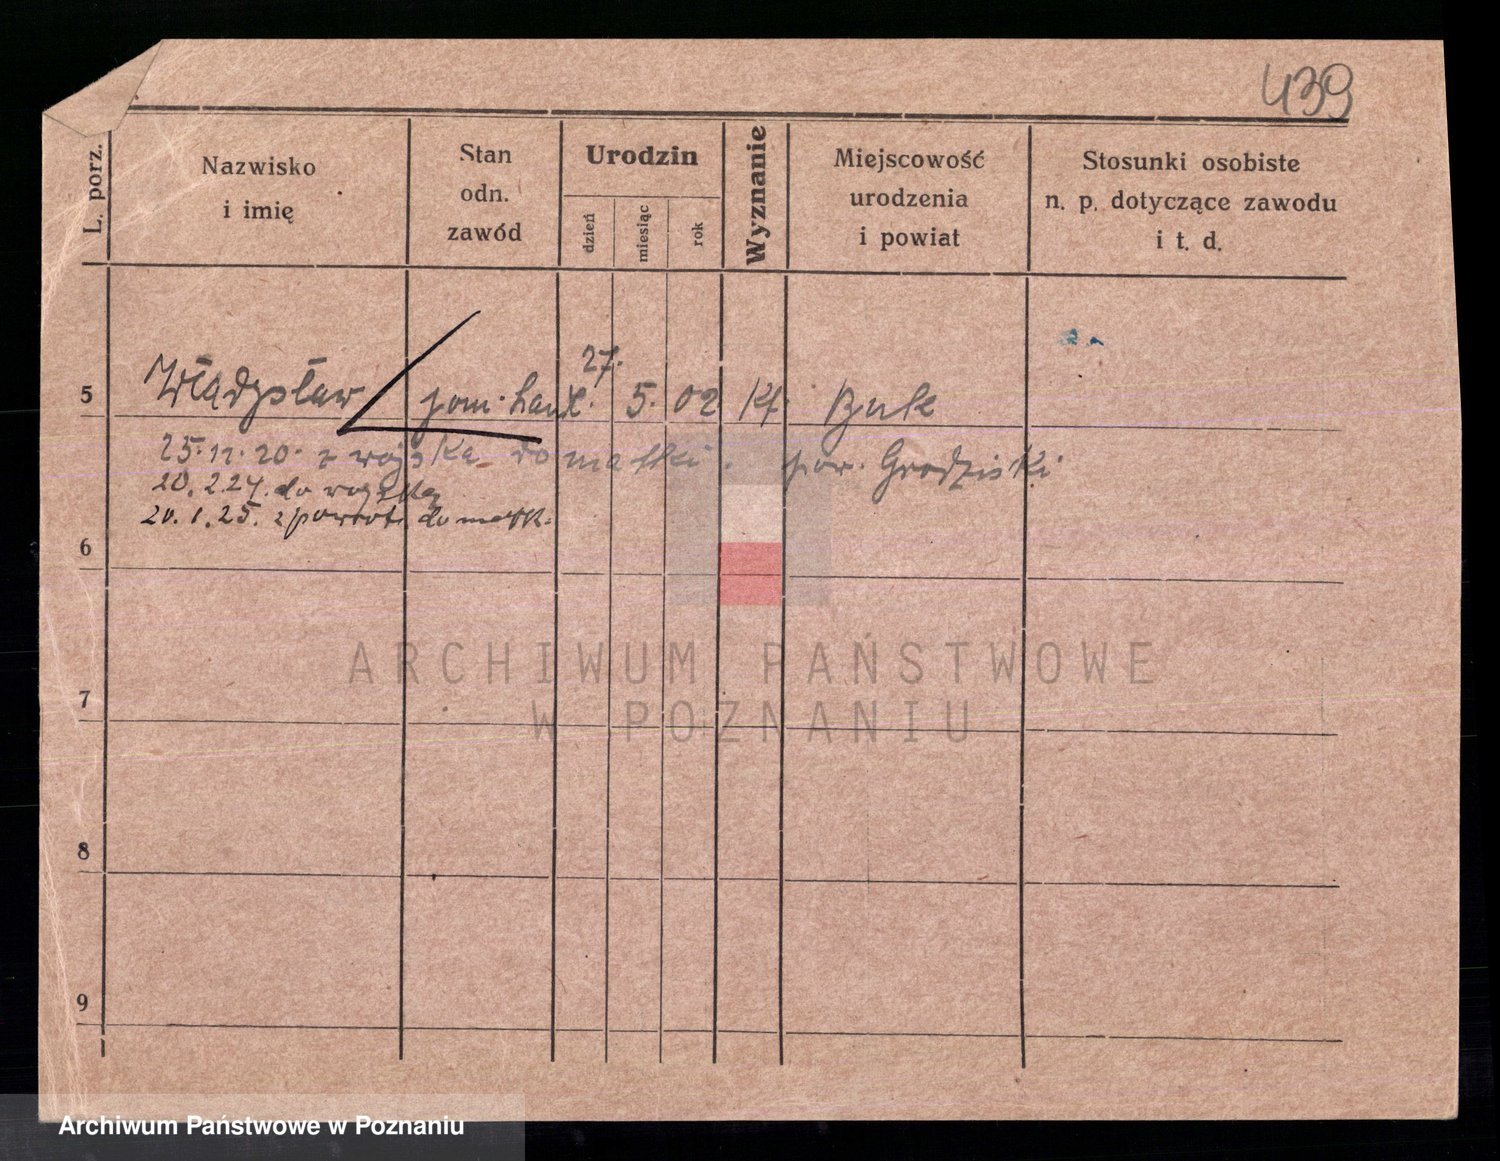 439
L. porz.
Nazwisko
i imię
Stan
odn.
zawód
Urodzin
dzień
miesiąc
rok
Wyznanie
Miejscowość
urodzenia
i powiat
Stosunki osobiste
n. p. dotyczące zawodu
i t. d.
5
Władysław
pom. handl.
27.
5.
02
Kt.
Buk
pow. Grodziski
25.11.20. z wojska do matki.
20.2.24. do wojska
20.1.25. z powrot. do matk.
6
7
8
9
ARCHIWUM PAŃSTWOWE
W POZNANIU
Archiwum Państwowe w Poznaniu